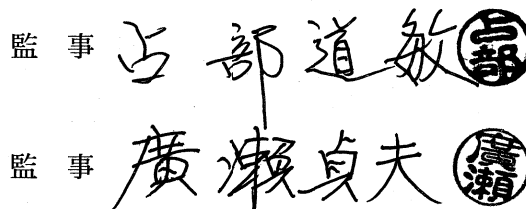 監事 占部道敏 占部
監事 廣瀬貞夫 廣瀬